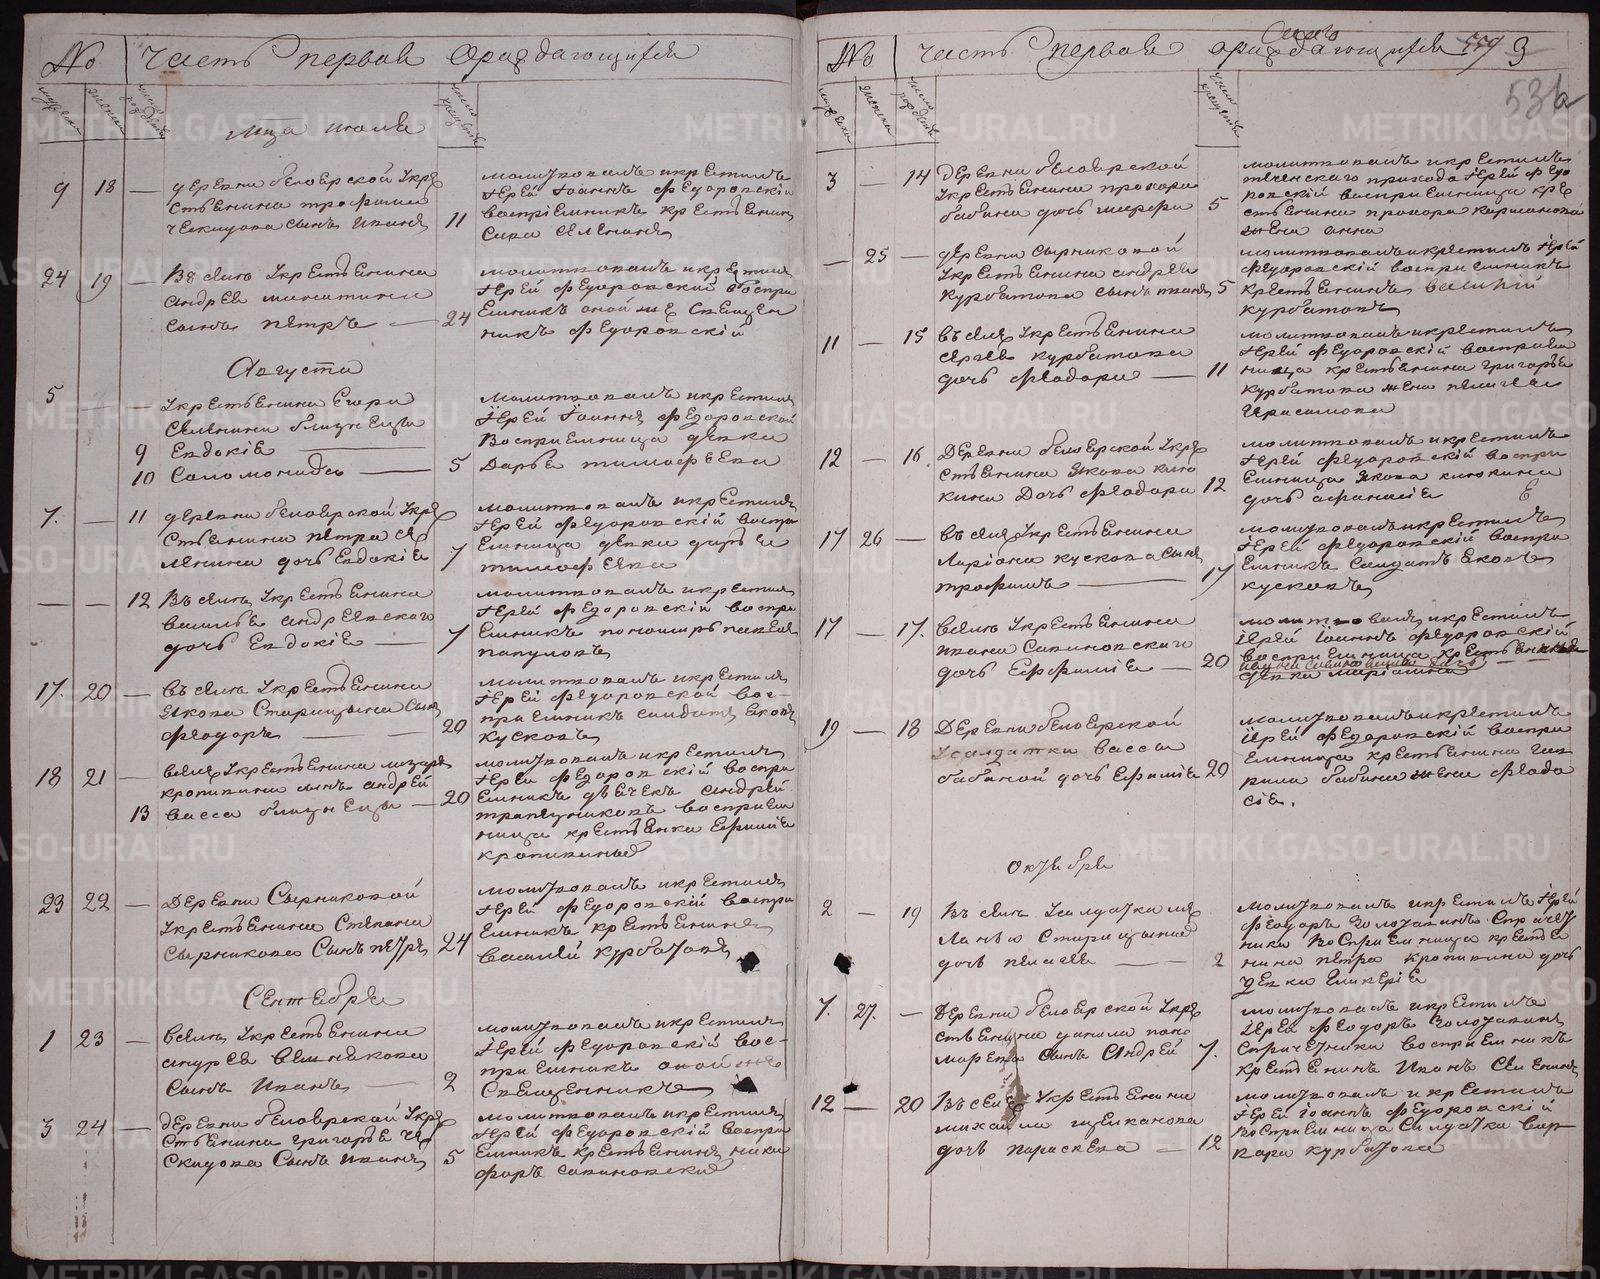 No Часть первая ораждающихся
мужеска
женска
число рождения
число крещения
мца июля
9 18 — деревни белоярской укре
стьянина трофима
ческидова сынъ иванъ 11
молитвовалъ икрестилъ
Іерей Іоаннъ федоровскій
воспріемникъ крестьянинъ
сава селенинъ
24 19 — Въ селе укрестьянина
андрея
сынъ петръ — 24
молитвовалъ икрестилъ
Іерей федоровский воспри
емникъ оной же священ
никъ федоровскій
Августа
5 — укрестьянина Егора
селенина близнецы
9 Евдокія
10 Соломонида — 5
молитвовалъ икрестилъ
Іерей Іоаннъ федоровской
Восприемница девка
дарья тимофеева
7. — 11 деревни белоярской укре
стьянина петра се
ленина дочь евдокія 7
молитвовалъ икрестилъ
Іерей федоровскій воспри
емница девка дарья
тимофеева
— — 12 Въ селе укрестьянина
василья андреевского
дочь евдокія — 7
молитвовалъ икрестилъ
Іерей федоровскій воспри
емникъ пономарь павелъ
папуловъ
17. 20 — въ селе укрестьянина
якова Старицына сынъ
федоръ — 20
молитвовалъ икрестилъ
Іерей федоровской вос-
приемникъ салдатъ яковъ
кусковъ
18 21 — вселе укрестьянина лазаря
кропивина сынъ андрей
13 васса близнецы — 20
молитвовалъ икрестилъ
Іерей федоровскій воспри
емникъ дьячекъ андрей
трапезниковъ восприем
ница крестьянка Ефимия
кропивина
23 22 — Деревни Сырниковой
укрестьянина Степана
Сырникова Сынъ петръ 24
молитвовалъ икрестилъ
Іерей федоровскій воспри
емникъ крестьянинъ
василей курбатовъ
Сентября
1 23 — вселе укрестьянина
андрея
сынъ иванъ — 2
молитвовалъ икрестилъ
Іерей федоровскій вос-
приемникъ оной же
священникъ
3 24 — деревни белоярской укре
стьянина григорья че
скидова Сынъ иванъ 5
молитвовалъ икрестилъ
Іерей федоровскій воспри
емникъ крестьянинъ ники
форъ савиновский
No часть первая ораждающихся 559 3
53б
мужеска
женска
число рождения
число крещения
3 — 14 деревни белоярской
укрестьянина прохора
бабина дочь марфа 5
молитвовалъ икрестилъ
теченского прихода Іерей федо
ровскій восприемница кре
стьянина прохора
жена анна
— 25 — деревни сырниковой
укрестьянина андрея
курбатова сынъ иванъ 5
молитвовалъ икрестилъ Іерей
федоровскій восприемникъ
крестьянинъ василій
курбатовъ
11 — 15 въ селе укрестьянина
сергея курбатова
дочь феодора — 11
молитвовалъ икрестилъ
Іерей федоровскій восприем
ница крестьянина григорья
курбатова жена пелагея
герасимова
12 — 16. Деревни белоярской укре
стьянина якова кило
кина дочь феодора 12
молитвовалъ икрестилъ
Іерей федоровскій воспри
емница якова килокина
дочь афанасія
17 26 — въ селе укрестьянина
ларіона кускова сынъ
трофимъ — 17
молитвовалъ икрестилъ
Іерей федоровскій воспри
емникъ салдатъ яковъ
кусковъ
17 — 17. вселе укрестьянина
ивана Савиновского
дочь Ефимія — 20
молитвовалъ икрестилъ
Іерей Іоаннъ федоровскій
восприемница
девка мариамна
19 — 18 Деревни белоярской
усалдатки вассы
бабиной дочь Ефимія 20
молитвовалъ икрестилъ
Іерей федоровскій воспри
емница крестьянина гав
рила бабина жена феодо
сія.
октября
2 — 19 Въ селе усалдатки ме
ланьи Старицыной
дочь пелагея — 2
молитвовалъ икрестилъ Іерей
федоръ Головинъ Спричет
ники Восприемница крестья
нина петра кропивина дочь
девка Гликерія
7. 27. — Деревни белоярской укре
стьянина данила поно
марева сынъ Андрей 7.
молитвовалъ икрестилъ
Іерей федоръ Головинъ
Спричетники восприемникъ
крестьянинъ Иванъ Селенинъ
12 — 20 Въ селе укрестьянина
михайла щелканова
дочь параскева — 12
молитвовалъ икрестилъ
Іерей Іоаннъ федоровскій
восприемница Салдатка вар
вара курбатова
METRIKI.GASO-URAL.RU